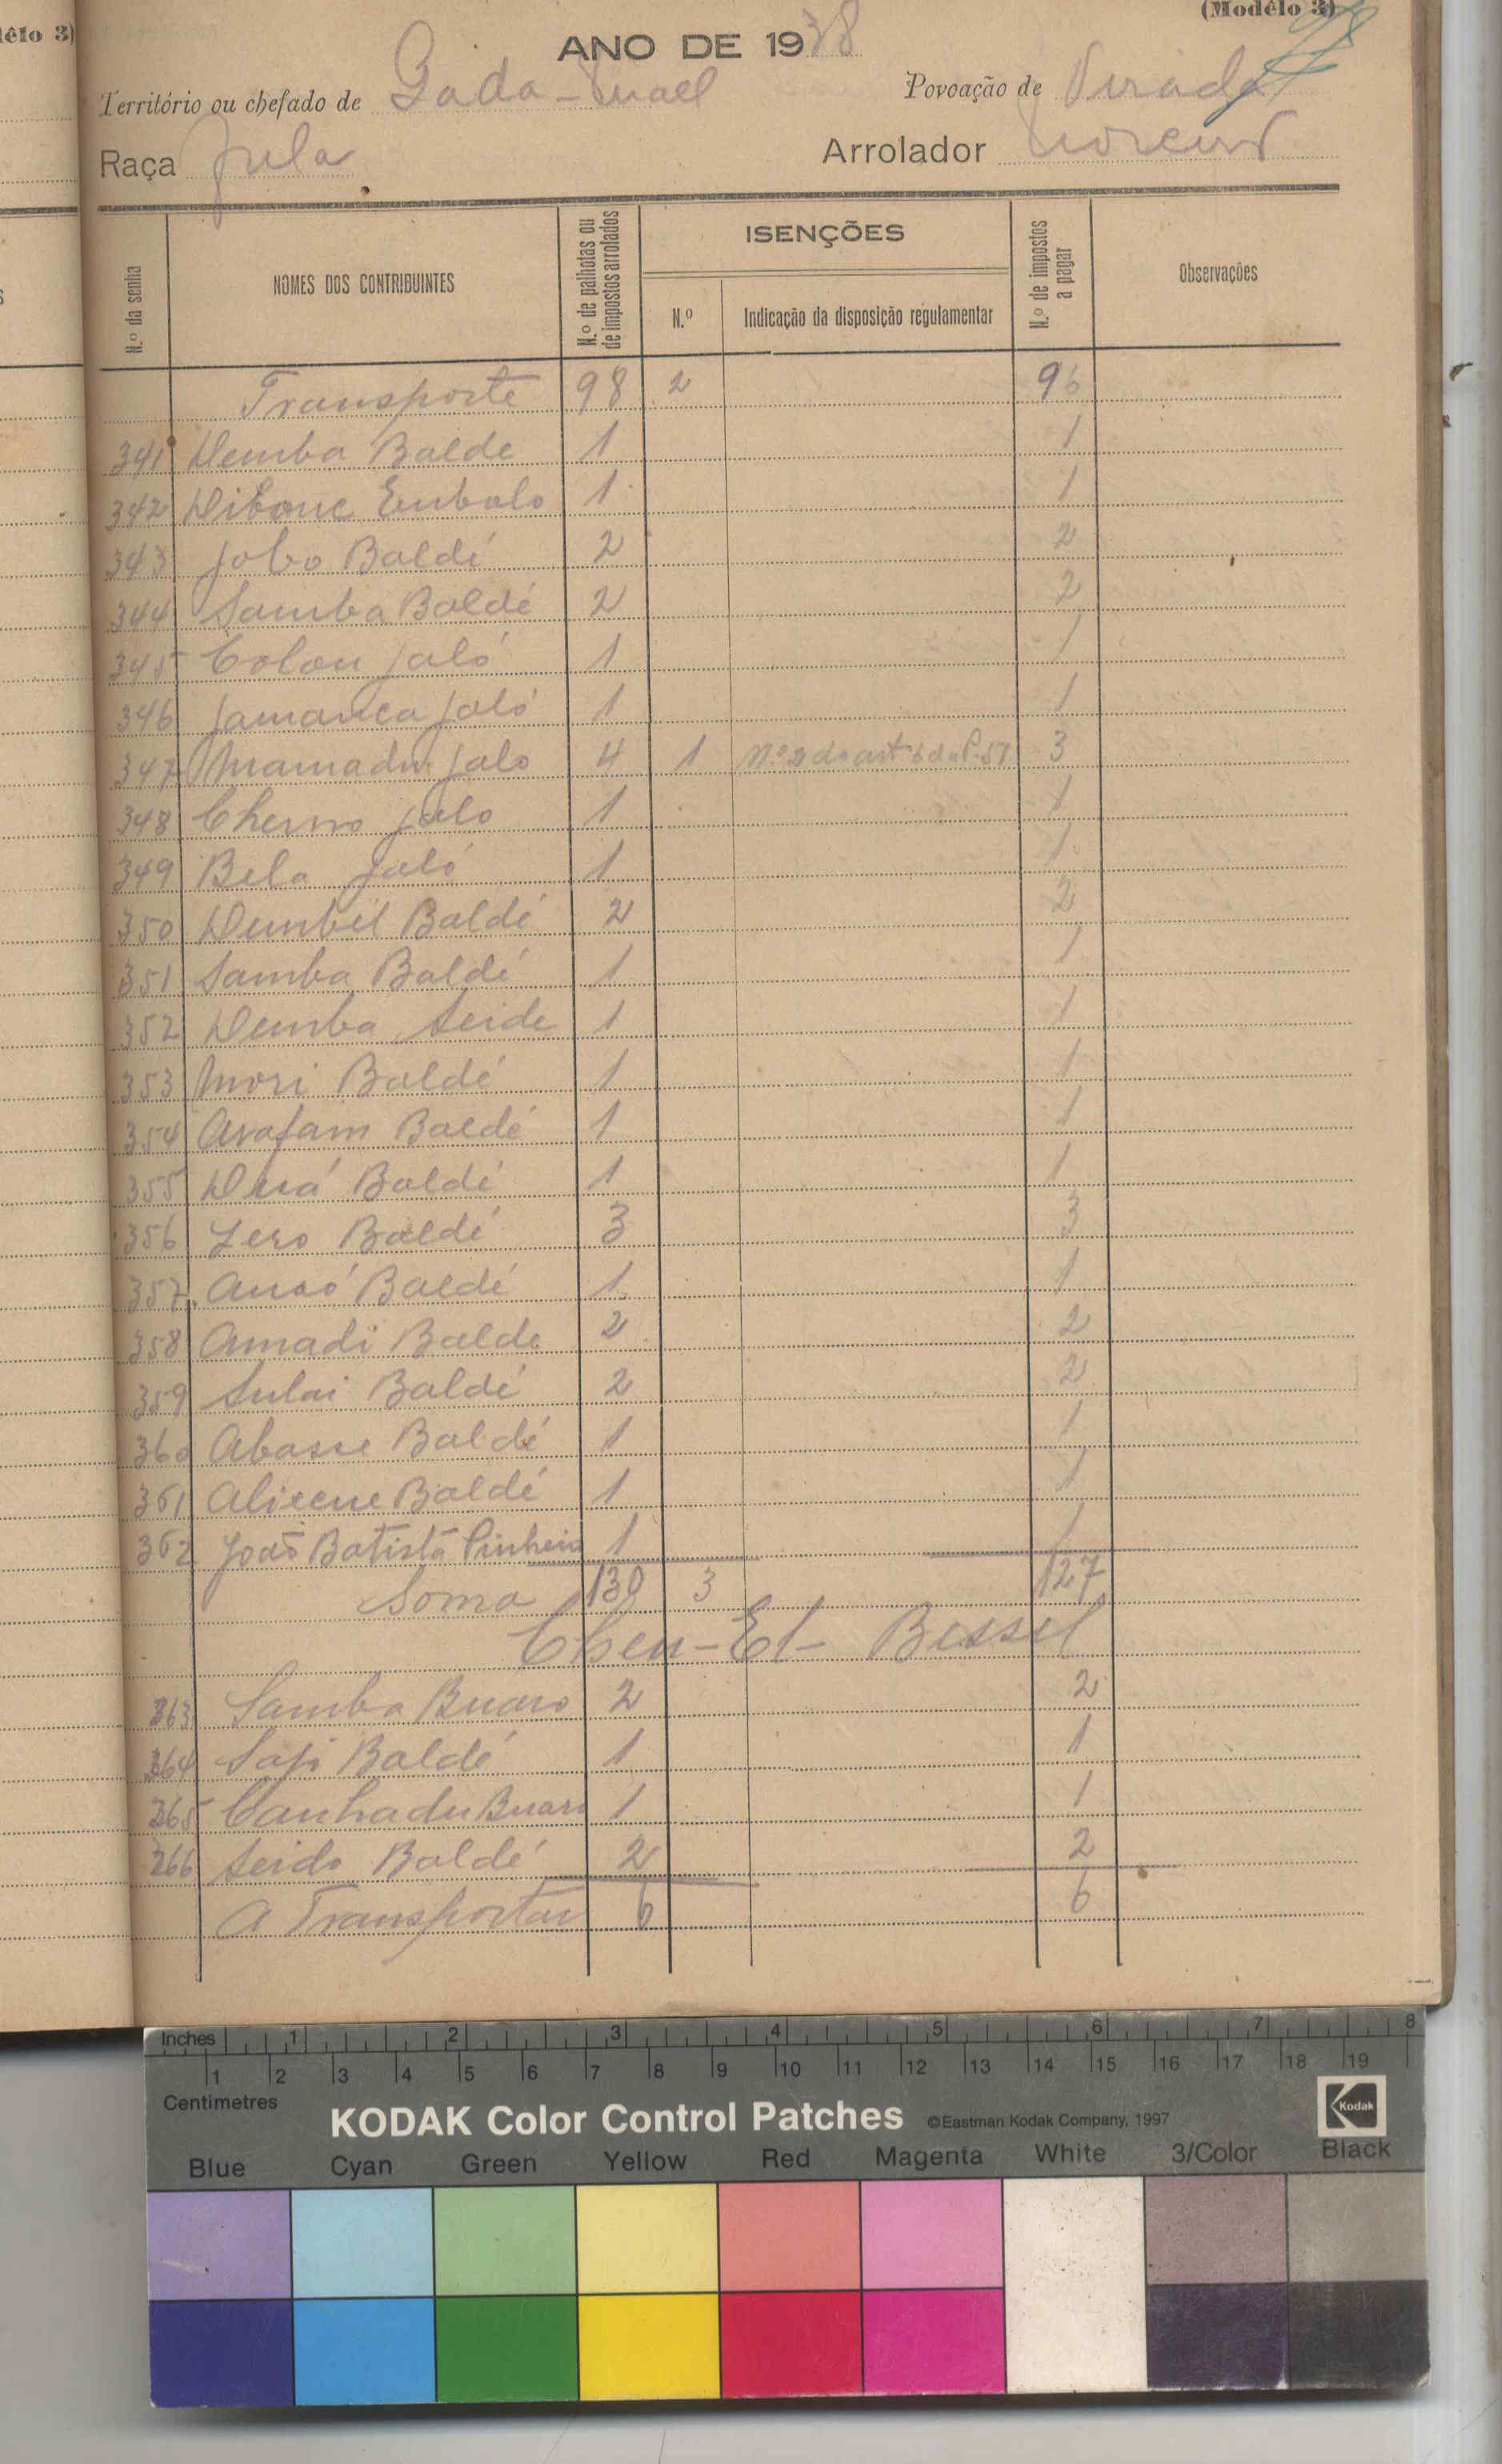 êlo 3)
(Modêlo 3)
ANO DE 1938
Território ou chefado de Gada-
Povoação de Pirada
Raça Fula
Arrolador
N.º da senha
NOMES DOS CONTRIBUINTES
N.º de palhotas ou de impostos arrolados
ISENÇÕES
N.º
Indicação da disposição regulamentar
N.º de impostos a pagar
Observações
Transporte 98 2 96
341 Demba Balde 1 1
342 Embalo 1 1
343 Jobo Baldé 2 2
344 Samba Baldé 2 2
345 Colou Jaló 1 1
346 Jamanca Jaló 1 1
347 Mamadu Jalo 4 1 N.º 2 do art.º 6 do 3
348 Cherno Jalo 1 1
349 Bela Jaló 1 1
350 Baldé 2 2
351 Samba Baldé 1 1
352 Demba Seide 1 1
353 Mori Baldé 1 1
354 Arafam Baldé 1 1
355 Baldé 1 1
356 Baldé 3 3
357 Ansó Baldé 1 1
358 Amadi Balde 2 2
359 Sulai Baldé 2 2
360 Abasse Baldé 1 1
361 Baldé 1 1
362 João Batista Pinheiro 1 1
Soma 130 3 127
363 Samba Buaro 2 2
364 Baldé 1 1
365 Canhadu Buaro 1 1
366 Seido Baldé 2 2
A Transportar 6 6
Inches 1 2 3 4 5 6 7 8
1 2 3 4 5 6 7 8 9 10 11 12 13 14 15 16 17 18 19
Centimetres
KODAK Color Control Patches ©Eastman Kodak Company, 1997
Kodak
Blue Cyan Green Yellow Red Magenta White 3/Color Black